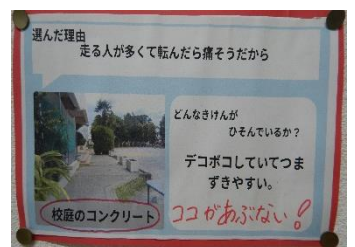 選んだ理由
走る人が多くて転んだら痛そうだから
どんなきけんが
ひそんでいるか？
デコボコしていてつま
ずきやすい。
校庭のコンクリート
ココがあぶない！